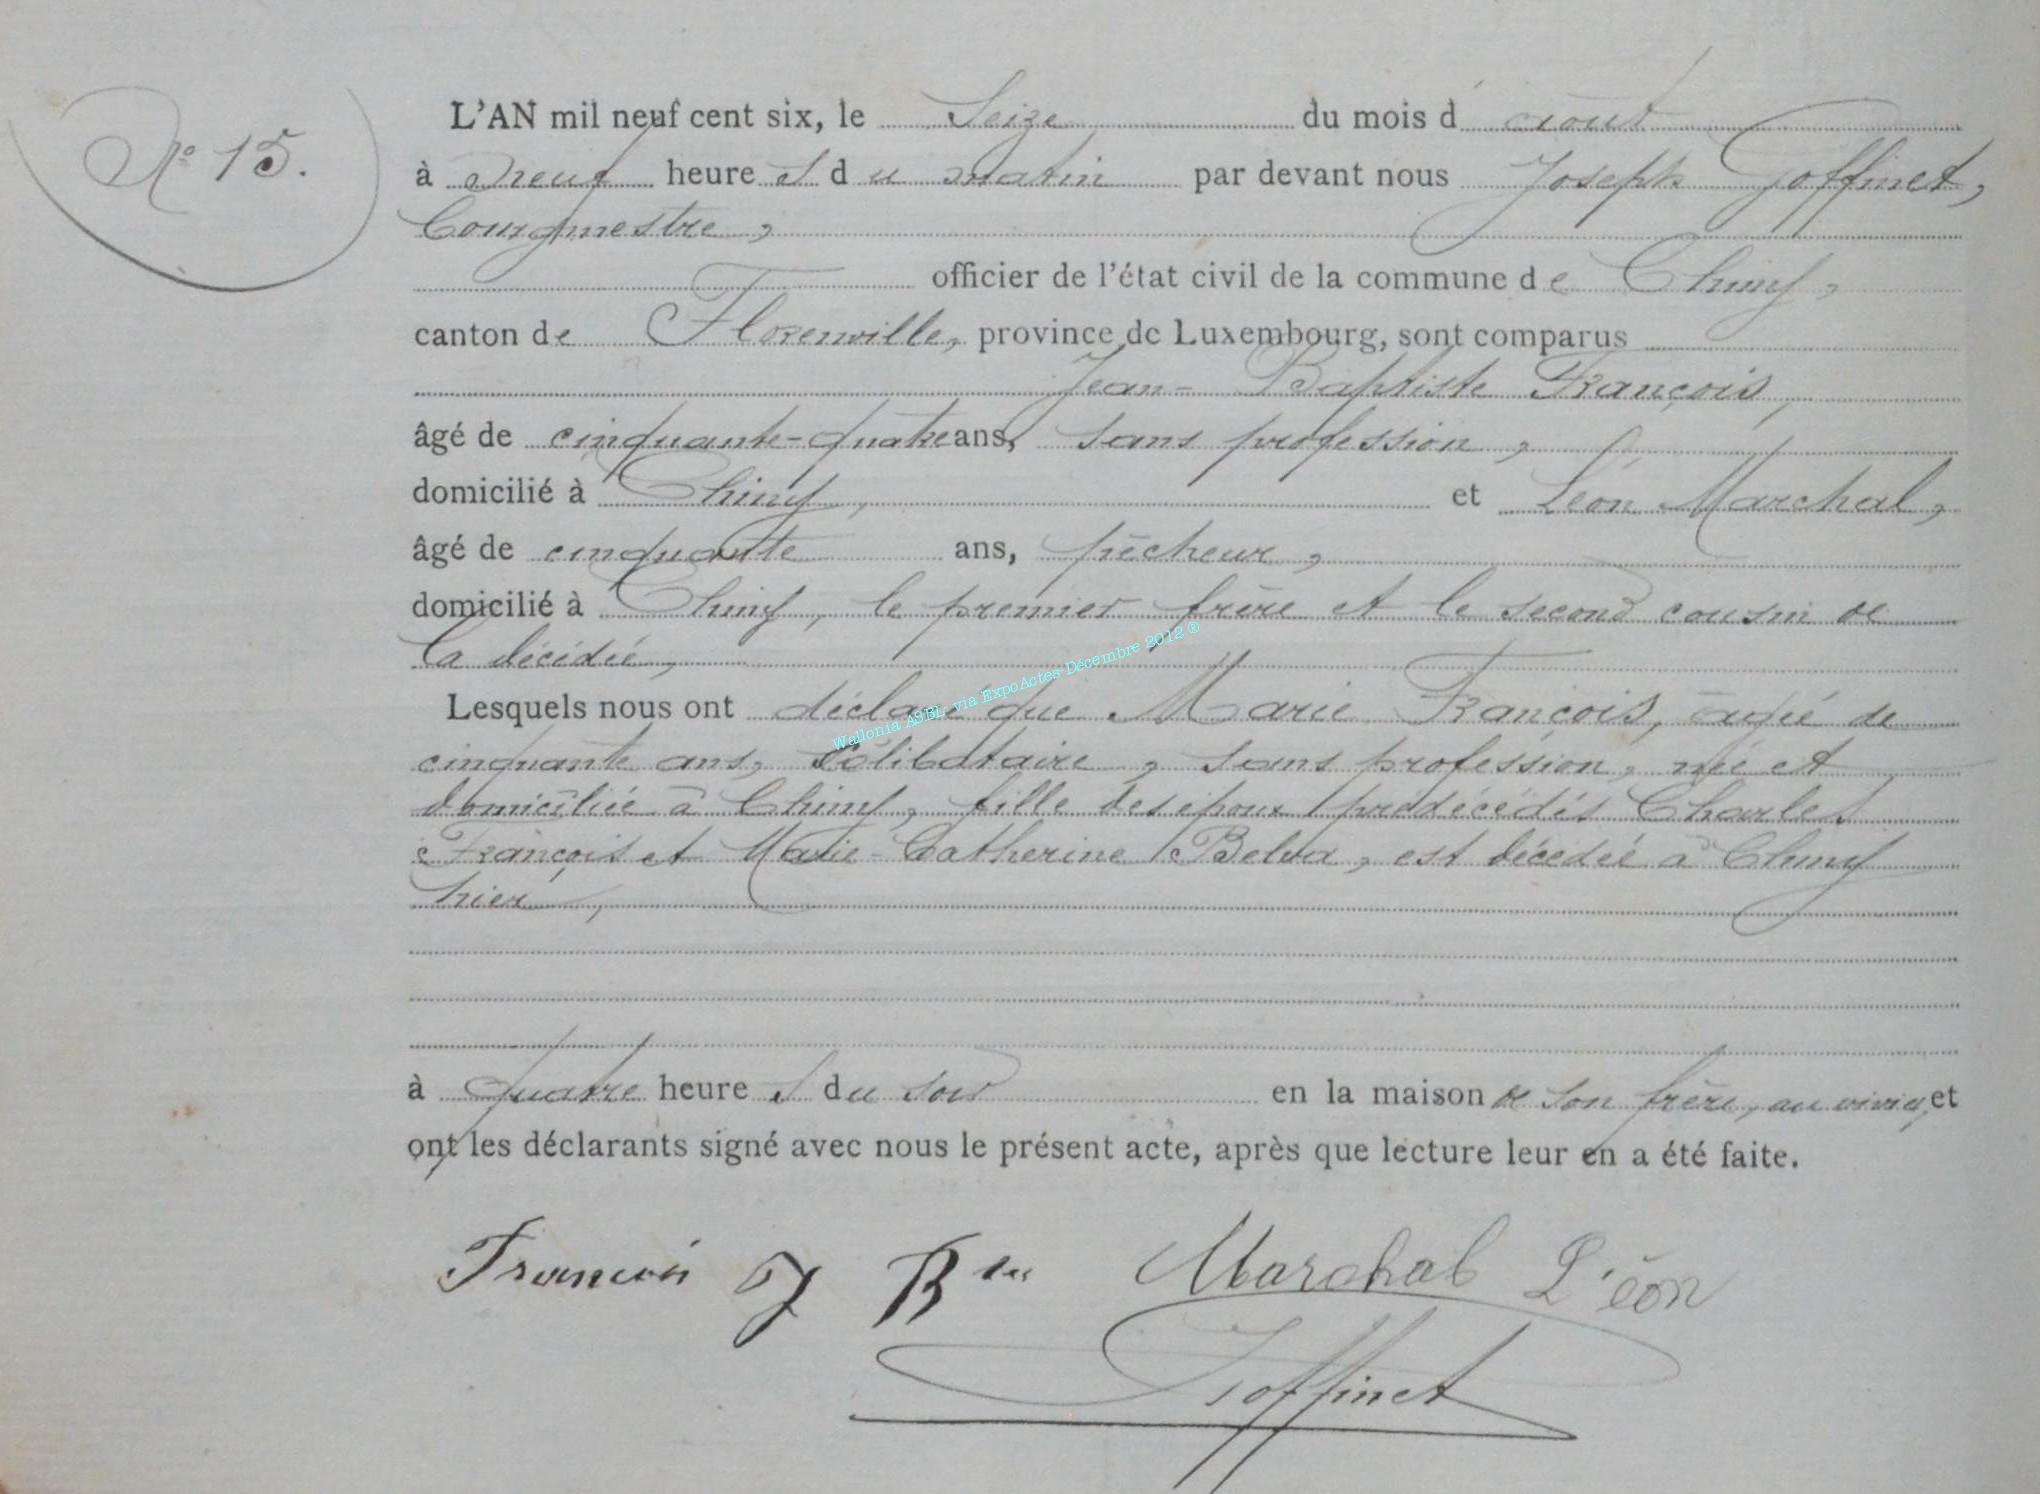 N° 15.
L'AN mil neuf cent six, le Seize du mois d'août
à neuf heures du matin par devant nous Joseph Goffinet,
bourgmestre,
officier de l'état civil de la commune de Chiny,
canton de Florenville, province de Luxembourg, sont comparus
Jean-Baptiste François,
âgé de cinquante-quatre ans, sans profession,
domicilié à Chiny, et Léon Marchal,
âgé de cinquante ans, pêcheur,
domicilié à Chiny, le premier frère et le second cousin de
la décédée,
Lesquels nous ont déclaré que Marie François, agée de
cinquante ans, Célibataire, sans profession, née et
domiciliée à Chiny, fille des époux prédécédés Charles
François et Marie-Catherine Belva, est décédée à Chiny
hier,
à quatre heures du soir en la maison de son frère, au et
ont les déclarants signé avec nous le présent acte, après que lecture leur en a été faite.
François J Bte Marchal Léon
Goffinet
Wallonia ASBL, via ExpoActes Décembre 2012 ®